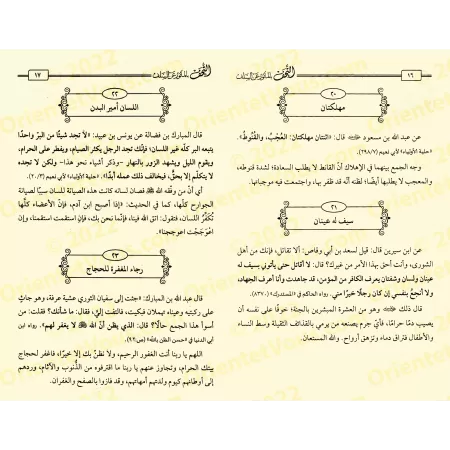 ١٦
٢٠
مهلكتان
عن عبد الله بن مسعود قال: «اثنتان مهلكتان: العُجْبُ، والقُنُوطُ».
«حلية الأولياء» لأبي نعيم (٢٩٨/٧)
وجه الجمع بينهما في الإهلاك أنَّ القانط لا يطلب السعادة؛ لشدة قنوطه،
والمعجب لا يطلبها أيضًا؛ لظنه أنه قد ظفر بها، واجتمعت فيه موجباتها.
٢١
سيف له عينان
عن ابن سيرين قال: قيل لسعد بن أبي وقاص: ألا تقاتل، فإنك من أهل
الشورى، وأنت أحق بهذا الأمر من غيرك؟ قال: لا أقاتل حتى يأتوني بسيف له
عينان ولسان وشفتان يعرف الكافر من المؤمن، قد جاهدت وأنا أعرف الجهاد،
ولا أبخع بنفسي إن كان رجلًا خيرًا مني. رواه الحاكم في «المستدرك» (٨٣٧٠).
قال ذلك وهو من العشرة المبشرين بالجنة؛ خوفًا على نفسه أن
يصيب دمًا حرامًا، فأي جرم يصنعه من يرمي بالقذائف الثقيلة وسط النساء
والأطفال فتراق دماء وتزهق أرواح. والله المستعان.
١٧
٢٢
اللسان أمير البدن
قال المبارك بن فضالة عن يونس بن عبيد: «لا تجد شيئًا من البرِّ واحدًا
يتبعه البر كلُّه غير اللسان؛ فإنك تجد الرجل يكثر الصيام، ويفطر على الحرام،
ويقوم الليل ويشهد الزور بالنهار -وذكر أشياء نحو هذا- ولكن لا تجده
لا يتكلَّم إلا بحقٍّ، فيخالف ذلك عمله أبدًا». «حلية الأولياء» لأبي نعيم (٢٠/٣)
أي أنَّ من وفَّقه الله فصان لسانه كانت هذه الصيانة للسان سببًا لصيانة
الجوارح كلِّها، كما في الحديث: (إذا أصبح ابن آدم، فإنَّ الأعضاء كلَّها
تُكفِّرُ اللسان، فتقول: اتق الله فينا، فإنَّما نحن بك، فإن استقمت استقمنا، وإن
اعوججت اعوججنا)
٢٣
رجاء المغفرة للحجاج
قال عبد الله بن المبارك: «جئت إلى سفيان الثوري عشية عرفة، وهو جاثٍ
على ركبتيه وعيناه تهملان فبكيت، فالتفت إليَّ، فقال: ما شأنك؟ فقلت: من
أسوأ هذا الجمع حالًا؟ قال: الذي يظن أنَّ الله لا يغفر لهم». رواه ابن
أبي الدنيا في «حسن الظن بالله» (ص٩٢).
اللهم يا ربنا أنت الغفور الرحيم، ولا نظنُّ بك إلا خيرًا؛ فاغفر لحجاج
بيتك الحرام، وتجاوز عنهم يا ربنا ما اقترفوه من الذنوب والآثام، وردهم
إلى أوطانهم كيوم ولدتهم أمهاتهم، وقد فازوا بالصفح والغفران.